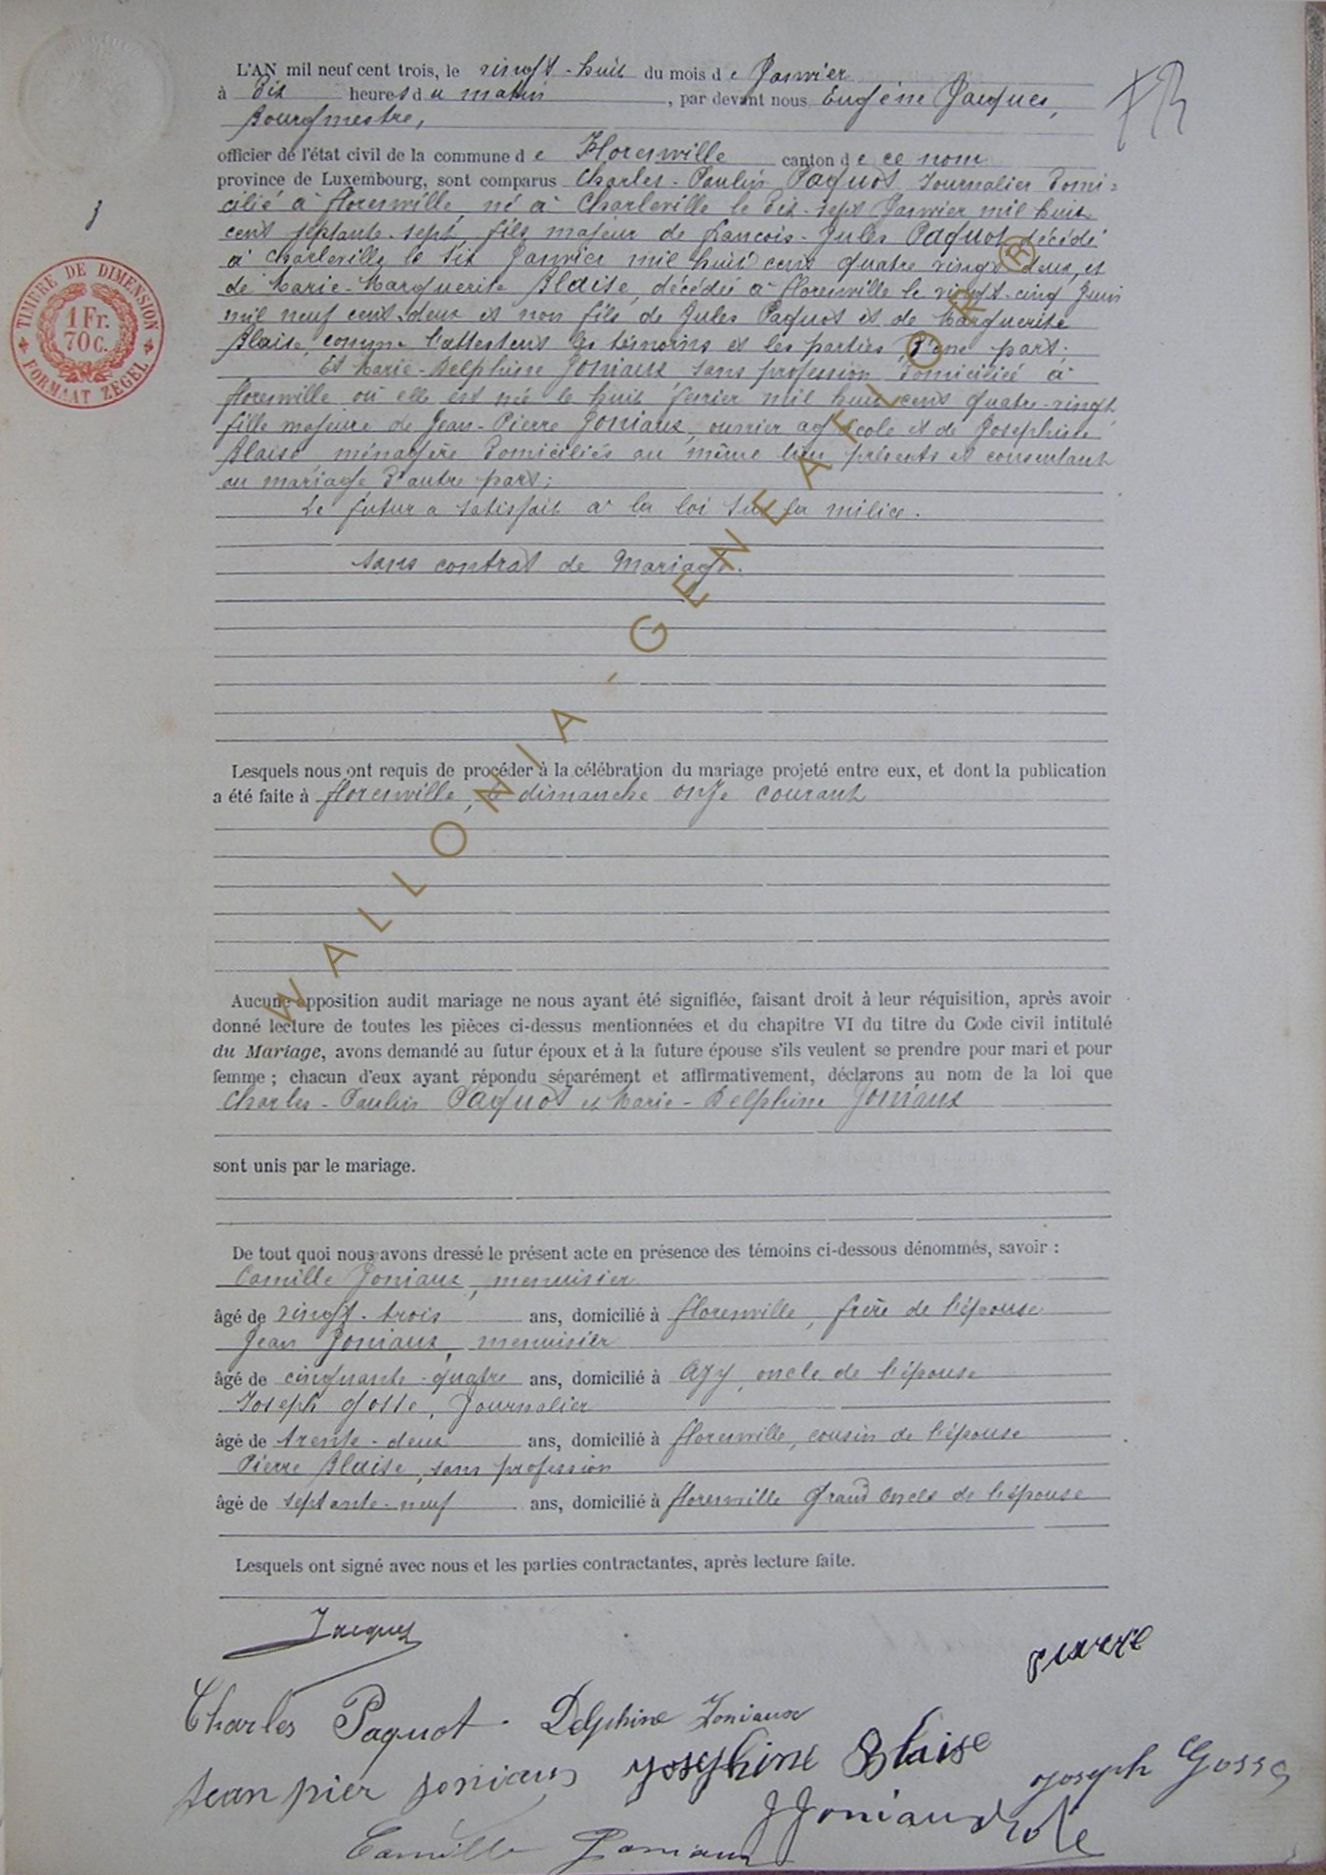 L'AN mil neuf cent trois, le vingt-huit du mois de Janvier
à dix heures du matin, par devant nous Eugène Jacques,
Bourgmestre,
officier de l'état civil de la commune de Florenville canton de ce nom
province de Luxembourg, sont comparus Charles-Paulin Paquot Journalier domi=
cilié à florenville né à Charleville le dix-sept Janvier mil huit
cent septante-sept, fils majeur de françois-Jules Paquot décédé
à Charleville le six Janvier mil huit cent quatre vingt deux, et
de Marie-Marguerite Blaise, décédée à florenville le vingt-cinq Juin
mil neuf cent deux et non fils de Jules Paquot et de Marguerite
Blaise, comme l'attestent les témoins et les parties d'une part;
Et Marie-Delphine Joniaux sans profession domiciliée à
florenville où elle est née le huit février mil huit cent quatre-vingt
fille majeure de Jean-Pierre Joniaux, ouvrier agricole et de Josephine
Blaise ménagère domiciliés au même lieu présents et consentant
au mariage d'autre part;
Le futur a satisfait à la loi sur la milice.
Sans contrat de Mariage.
Lesquels nous ont requis de procéder à la célébration du mariage projeté entre eux, et dont la publication
a été faite à florenville, le dimanche onze courant
Aucune opposition audit mariage ne nous ayant été signifiée, faisant droit à leur réquisition, après avoir
donné lecture de toutes les pièces ci-dessus mentionnées et du chapitre VI du titre du Code civil intitulé
du Mariage, avons demandé au futur époux et à la future épouse s'ils veulent se prendre pour mari et pour
femme ; chacun d'eux ayant répondu séparément et affirmativement, déclarons au nom de la loi que
Charles-Paulin Paquot et Marie-Delphine Joniaux
sont unis par le mariage.
De tout quoi nous avons dressé le présent acte en présence des témoins ci-dessous dénommés, savoir :
Camille Joniaux, menuisier
âgé de vingt-trois ans, domicilié à florenville, frère de l'épouse
Jean Joniaux, menuisier
âgé de cinquante-quatre ans, domicilié à Azy, oncle de l'épouse
Joseph Gosse, Journalier
âgé de trente-deux ans, domicilié à florenville, cousin de l'épouse
Pierre Blaise, sans profession
âgé de septante-neuf ans, domicilié à florenville Grand Oncle de l'épouse
Lesquels ont signé avec nous et les parties contractantes, après lecture faite.
Jacques
pierre
Charles Paquot. Delphine Joniaux
Jean pier Joniaux Josephine Blaise Joseph Gosse
JJoniaux
Camille Joniaux
TIMBRE DE DIMENSION
1 Fr.
70 C.
FORMAAT ZEGEL
WALLONIA-GENEAFLOR ®